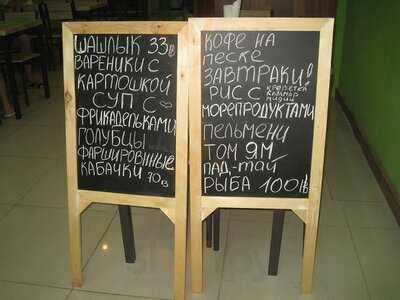 ШАШЛЫК 33฿
ВАРЕНИКИ С
КАРТОШКОЙ
СУП С
ФРИКАДЕЛЬКАМИ
ГОЛУБЦЫ
ФАРШИРОВАННЫЕ
КАБАЧКИ 70฿
КОФЕ НА
ПЕСКЕ
ЗАВТРАКИ!
РИС С КРЕВЕТКИ КАЛЬМАР МИДИИ
МОРЕПРОДУКТАМИ
ПЕЛЬМЕНИ
ТОМ ЯМ
ПАД-ТАЙ
РЫБА 100฿